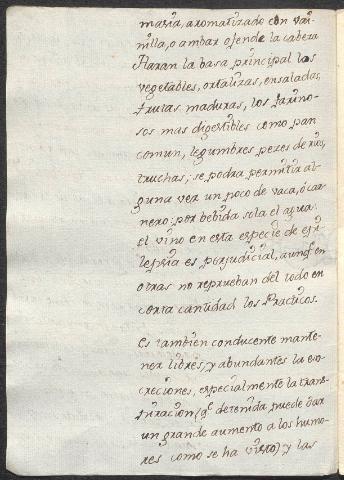 maria, aromatizado con vai-
nilla, o ambar ofende la cabeza
Haran la basa principal los
vegetables, ortalizas, ensaladas,
frutas maduras, los farino-
sos mas digestibles como pan
comun, legumbres pezes de rio,
truchas; se podra permitir al-
guna vez un poco de vaca, ó car-
nero: por bebida sola el agua:
el vino en esta especie de epi-
lepsia es perjudicial, aunq.e en
otras no reprueban del todo en
corta cantidad los Practicos.
Es tambien conducente mante-
ner libres, y abundantes la ex-
creciones, especialmente la trans-
piracion (q.e detenida puede dar
un grande aumento a los humo-
res como se ha visto) y las